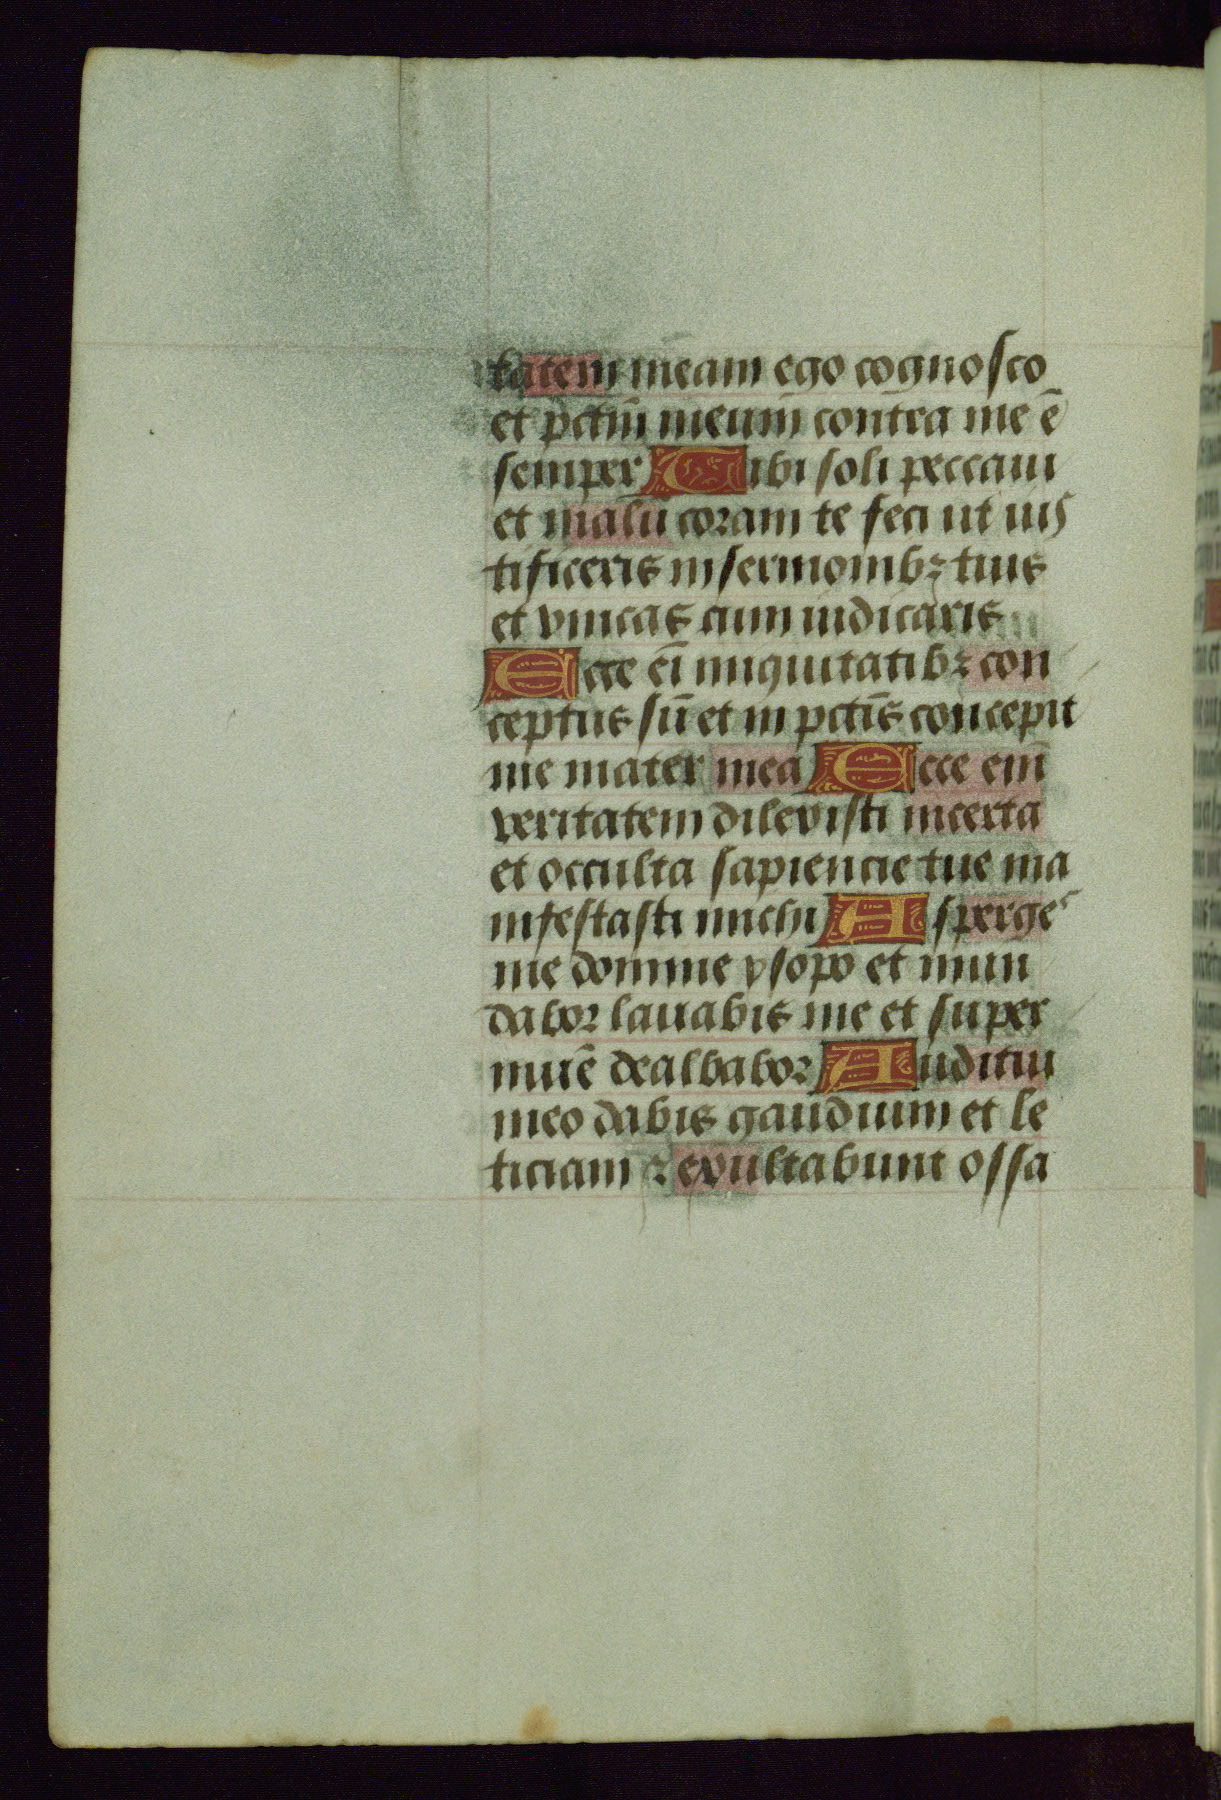 tatem meam ego cognosco
et pctm̄ meum contra me ē
semper Tibi soli peccaui
et malū coram te feci ut ius
tificeris in sermonibꝫ tuis
et vincas cum iudicaris
Ecce ei̅ iniquitatibꝫ con
ceptus sū et in pctīs concepit
me mater mea Ecce enī
veritatem dilexisti incerta
et occulta sapiencie tue ma
nifestasti michi Asperges
me domine ysopo et mun
dabor lauabis me et super
niuē dealbabor Auditui
meo dabis gaudium et le
ticiam ⁊ exultabunt ossa